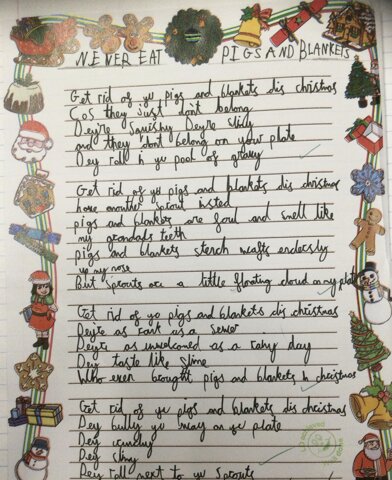 NEVER EAT PIGS AND BLANKETS
Get rid of yo pigs and blankets dis christmas
Cos they just dont belong
Deyre Squishy Deyre Slicy
and they dont belong on your plate
Dey roll in yo pool of gravy
Get rid of yo pigs and blankets dis christmas
have another sprout insted
pigs and blankets are foul and smell like
my grandads teeth
pigs and blankets stench wafts endlessly
up my nose
But sprouts are a little floating cloud on my plate
Get rid of yo pigs and blankets dis christmas
Deyre as fark as a sewer
Deyre as unwelcomed as a rainy day
Dey taste like Slime
Who even brought pigs and blankets in christmas
Get rid of yo pigs and blankets dis christmas
Dey bully yo on yo plate
Dey
Dey slimy
Dey roll next to yo Sprouts